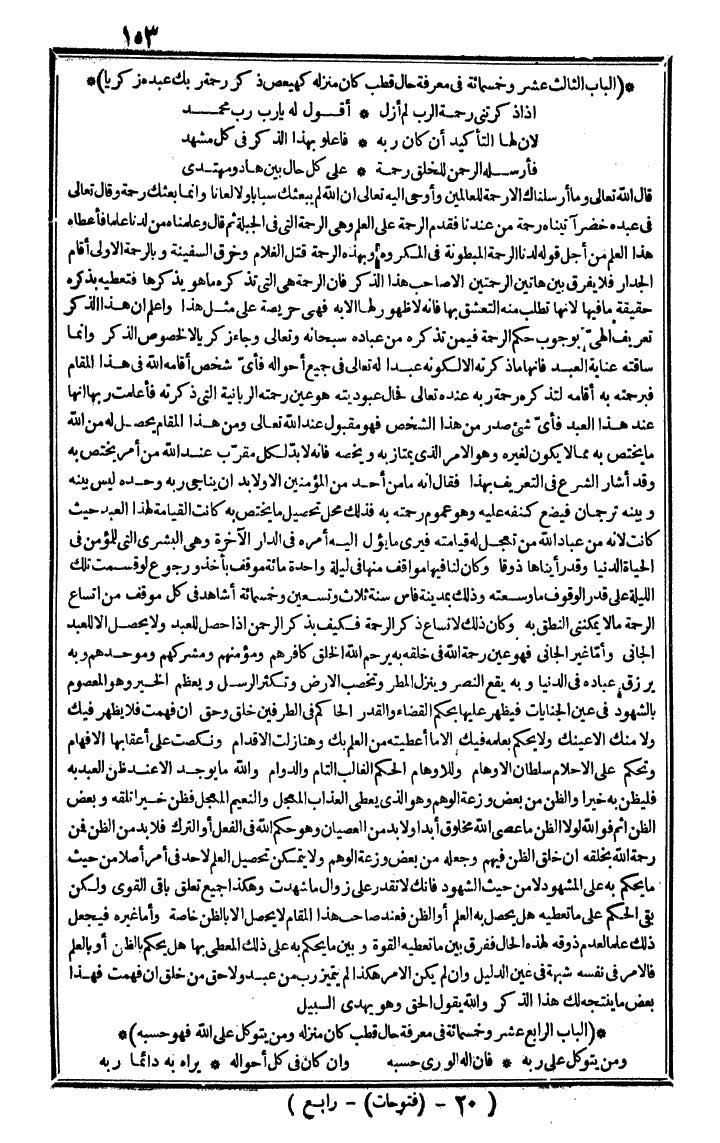 ١٥٣
*(الباب الثالث عشر وخمسمائة فى معرفة حال قطب كان منزله كهيعص ذكر رحمة ربك عبده زكريا)*
اذا ذكرتنى رحمة الرب لم أزل * أقول له يارب رب محمد
لان لها التأكيد أن كان ربه * فاعلو بهذا الذكر فى كل مشهد
فأرسله الرحمن للخلق رحمة * على كل حال بين هاد ومهتدى
قال الله تعالى وما أرسلناك الارحمة للعالمين وأوحى اليه تعالى ان الله لم يبعثك سبابا ولا لعانا وانما بعثك رحمة وقال تعالى
فى عبده خضر آتيناه رحمة من عندنا فقدم الرحمة على العلم وهى الرحمة التى فى الجبلة ثم قال وعلمناه من لدنا علما فأعطاه
هذا العلم من أجل قوله لدنا الرحمة المبطونة فى المكروه وبهذه الرحمة قتل الغلام وخرق السفينة و بالرحمة الاولى أقام
الجدار فلا يفرق بين هاتين الرحمتين الاصاحب هذا الذكر فان الرحمة هى التى تذكره ماهو يذكرها فتعطيه بذكره
حقيقة مافيها لانها تطلب منه التعشق بها فانه لاظهور لها الابه فهى حريصة على مثل هذا واعلم ان هذا الذكر
تعريف الهىّ بوجوب حكم الرحمة فيمن تذكره من عباده سبحانه وتعالى وجاء زكريا لالخصوص الذكر وانما
ساقته عناية العبد فانها ماذكرته الالكونه عبدا له تعالى فى جميع أحواله فأىّ شخص أقامه الله فى هذا المقام
فبرحمته به أقامه لتذكره رحمة ربه عنده تعالى فحال عبوديته هو عين رحمته الربانية التى ذكرته فأعلمت ربها انها
عند هذا العبد فأىّ شئ صدر من هذا الشخص فهو مقبول عند الله تعالى ومن هذا المقام يحصل له من الله
مايختص به مما لايكون لغيره وهو الامر الذى يمتاز به و يخصه فانه لابدّ لكل مقرّب عند الله من أمر يختص به
وقد أشار الشرع فى التعريف بهذا فقال انه مامن أحد من المؤمنين الاولابد ان يناجى ربه وحده ليس بينه
و بينه ترجمان فيضع كنفه عليه وهو عموم رحمته به فذلك محل تحصيل مايختص به كانت القيامة لهذا العبد حيث
كانت لانه من عباد الله من تعجل له قيامته فيرى مايؤل اليه أمره فى الدار الآخرة وهى البشرى التى للمؤمن فى
الحياة الدنيا وقد رأيناها ذوقا وكان لنا فيها مواقف منها فى ليلة واحدة مائة موقف بأخذ و رجوع لوقسمت تلك
الليلة على قدر الوقوف ماوسعته وذلك بمدينة فاس سنة ثلاث وتسعين وخمسمائة أشاهد فى كل موقف من اتساع
الرحمة مالا يمكننى النطق به وكان ذلك لاتساع ذكر الرحمة فكيف بذكر الرحمن اذا حصل للعبد ولا يحصل الا للعبد
الجانى وأمّا غير الجانى فهو عين رحمة الله فى خلقه به يرحم الله الخلق كافرهم ومؤمنهم ومشركهم وموحدهم وبه
يرزق عباده فى الدنيا و به يقع النصر وينزل المطر وتخصب الارض وتكثر الرسل و يعظم الخير وهو المعصوم
بالشهود فى عين الجنايات فيظهر عليها بحكم القضاء والقدر الحاكم فى الطرفين خلق وحق ان فهمت فلا يظهر فيك
ولا منك الاعينك ولا يحكم بعلمه فيك الاما أعطيته من العلم بك وهنا زلت الاقدام ونكصت على أعقابها الافهام
وتحكم على الاحلام سلطان الاوهام وللاوهام الحكم الغالب التام والدوام والله مايوجد الاعند ظن العبد به
فليظن به خيرا والظن من بعض وزعة الوهم وهو الذى يعطى العذاب المعجل والنعيم المعجل فظن خيرا تلقه و بعض
الظن اثم فوالله لولا الظن ماعصى الله مخلوق أبدا ولابد من العصيان وهو حكم الله فى الفعل أو الترك فلابد من الظن فمن
رحمة الله بخلقه ان خلق الظن فيهم وجعله من بعض وزعة الوهم ولا يتمكن تحصيل العلم لاحد فى أمر أصلا من حيث
مايحكم به على المشهود لامن حيث الشهود فانك لاتقدر على زوال ماشهدت وهكذا جميع تعلق باقى القوى ولكن
بقى الحكم على ماتعطيه هل يحصل به العلم أو الظن فعند صاحب هذا المقام لايحصل الابالظن خاصة وأما غيره فيجعل
ذلك علما لعدم ذوقه لهذه الحال ففرق بين ماتعطيه القوة و بين مايحكم به على ذلك المعطى بها هل يحكم بالظن أو بالعلم
فالامر فى نفسه شبهة فى عين الدليل وان لم يكن الامر هكذا لم يتميز رب من عبد ولا حق من خلق ان فهمت فهذا
بعض ماينتجه لك هذا الذكر والله يقول الحق وهو يهدى السبيل
*(الباب الرابع عشر وخمسمائة فى معرفة حال قطب كان منزله ومن يتوكل على الله فهو حسبه)*
ومن يتوكل على ربه * فان اله الورى حسبه وان كان فى كل أحواله * يراه به دائما ربه
(٢٠ - (فتوحات) - رابع)